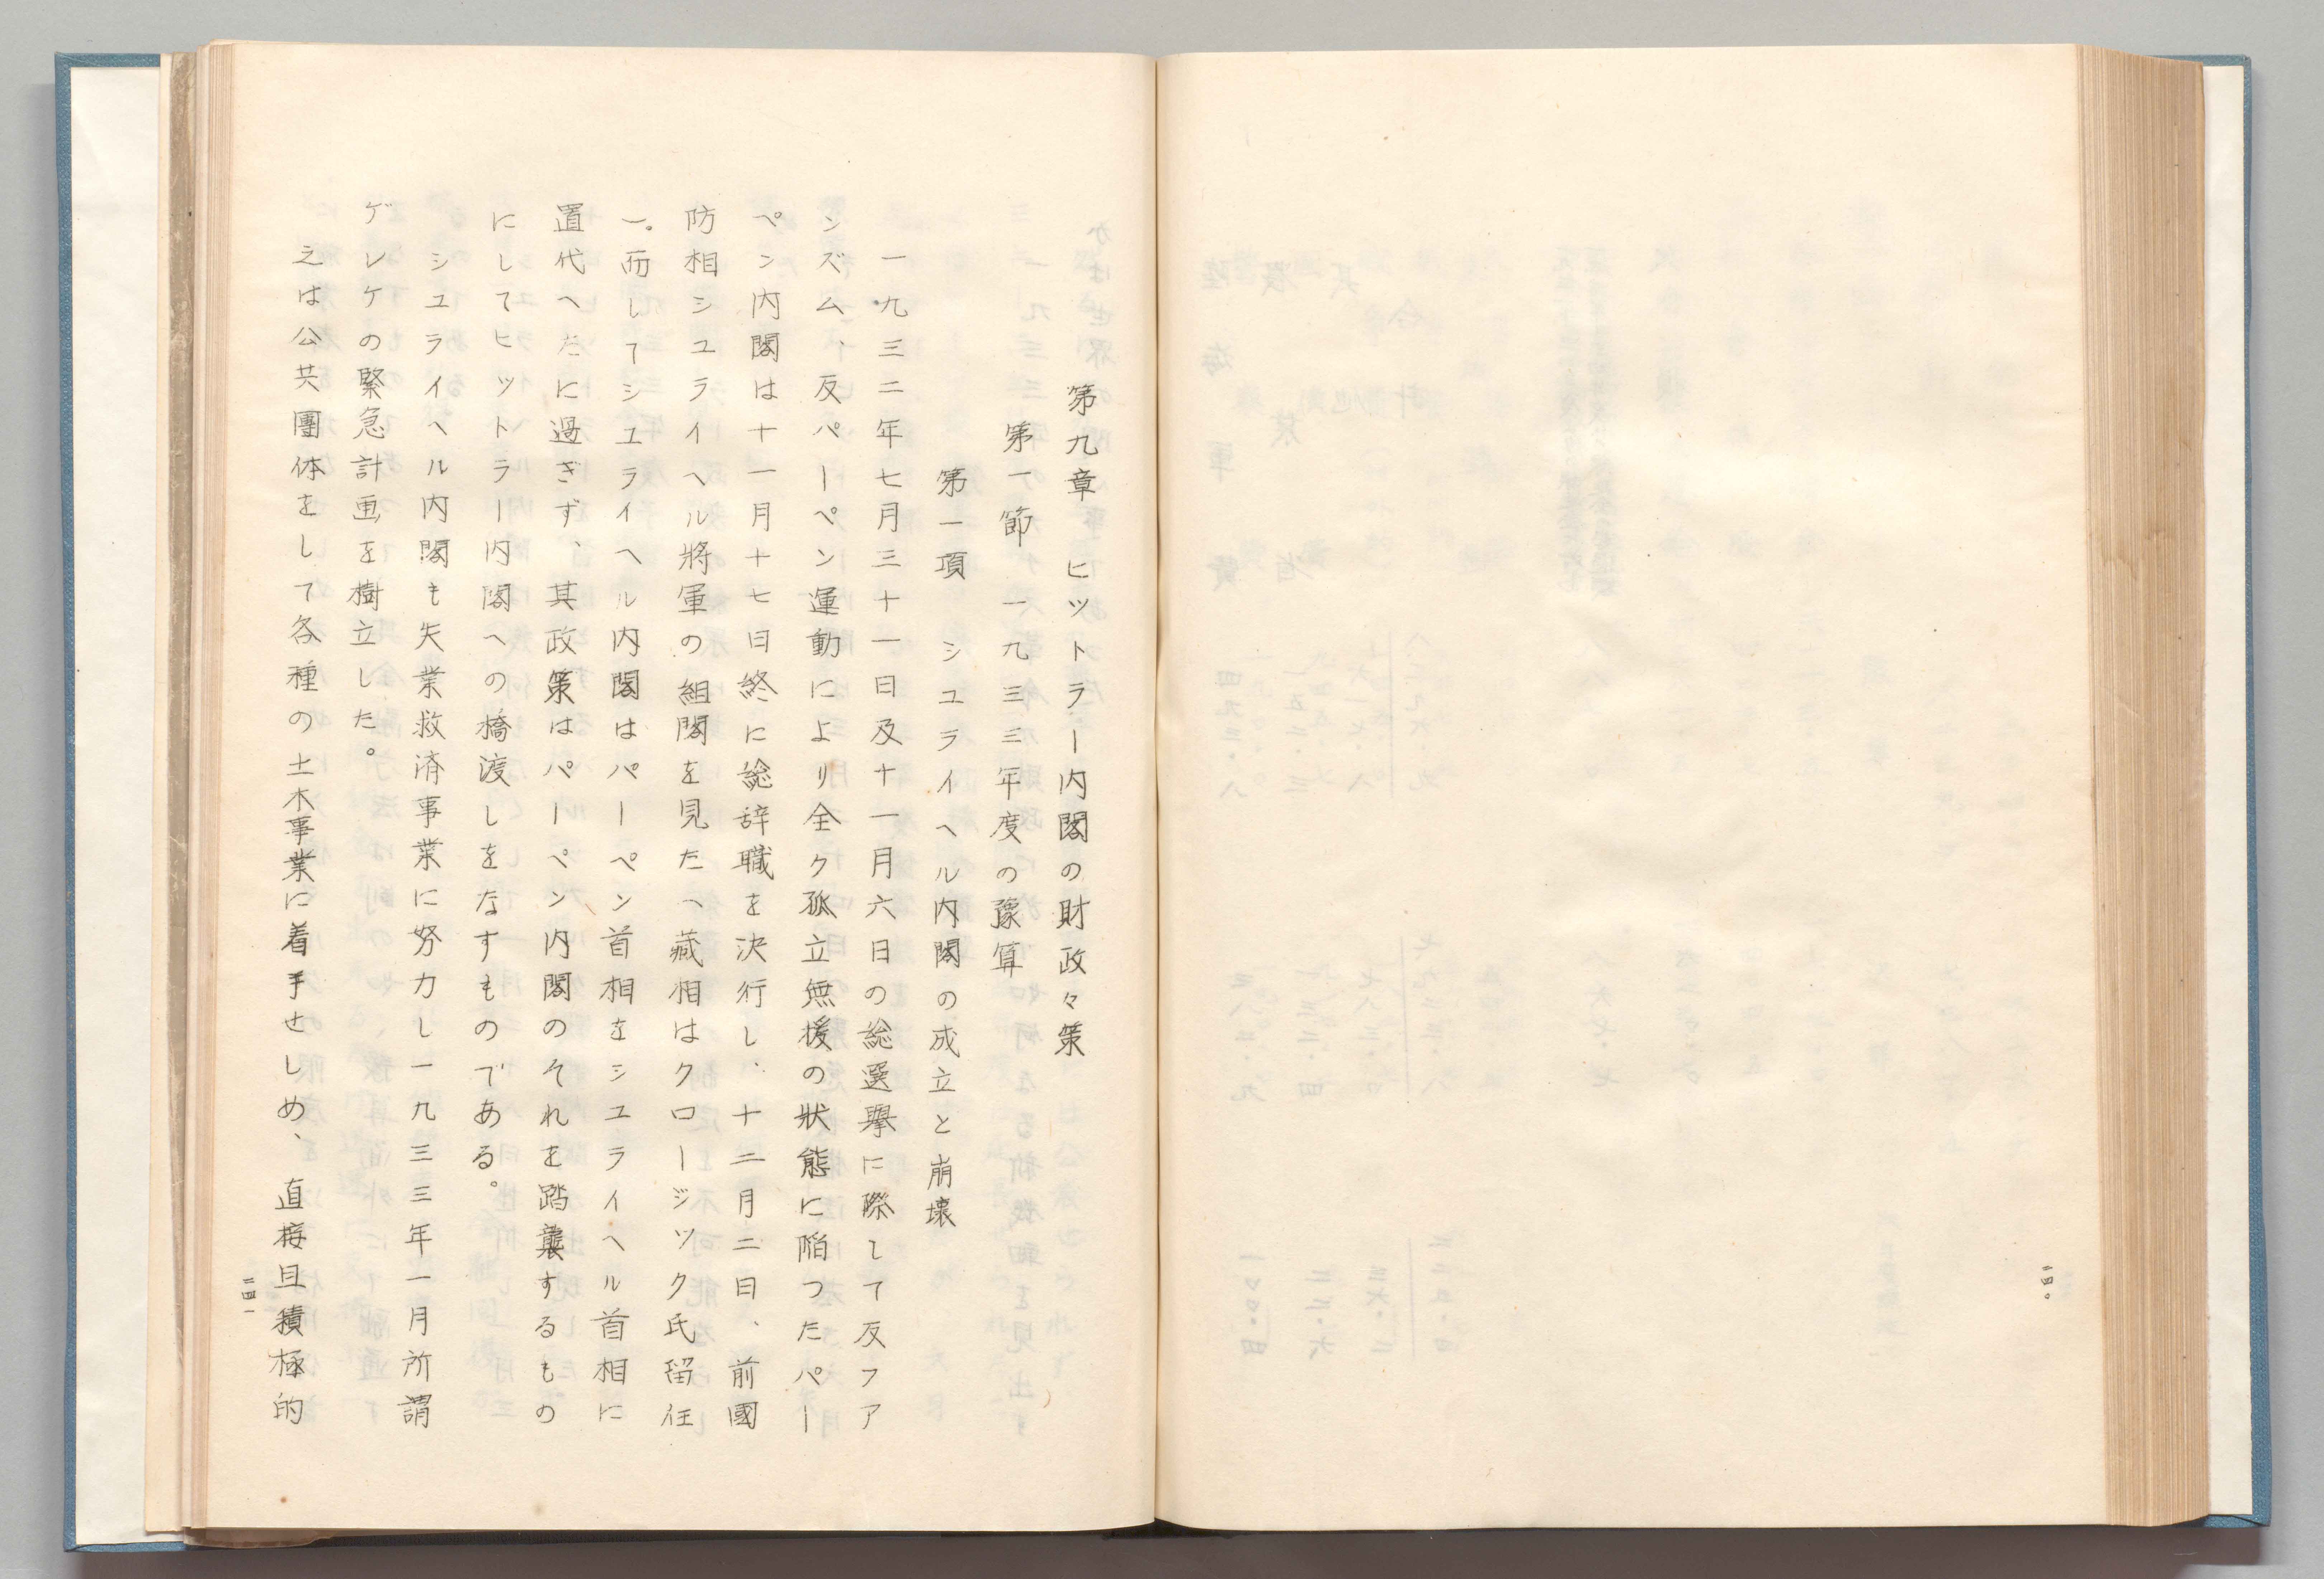 二四〇
第九章　ヒツトラー内閣の財政々策
第一節　一九三三年度の豫算
第一項　シユライヘル内閣の成立と崩壊
一九三二年七月三十一日及十一月六日の総選擧に際して反フア
ンズム、反パーペン運動により全ク孤立無援の狀態に陥つたパー
ペン内閣は十一月十七日終に総辞職を決行し、十二月二日、前國
防相シユライヘル將軍の組閣を見た（藏相はクロージツク氏留任
）。而してシユライヘル内閣はパーペン首相をシユライヘル首相に
置代へたに過ぎず、其政策はパーペン内閣のそれを踏襲するもの
にしてヒツトラー内閣への橋渡しをなすものである。
シユライヘル内閣も失業救済事業に努力し一九三三年一月所謂
ゲレケの緊急計画を樹立した。
之は公共團体をして各種の土木事業に着手せしめ、直接且積極的
二四一